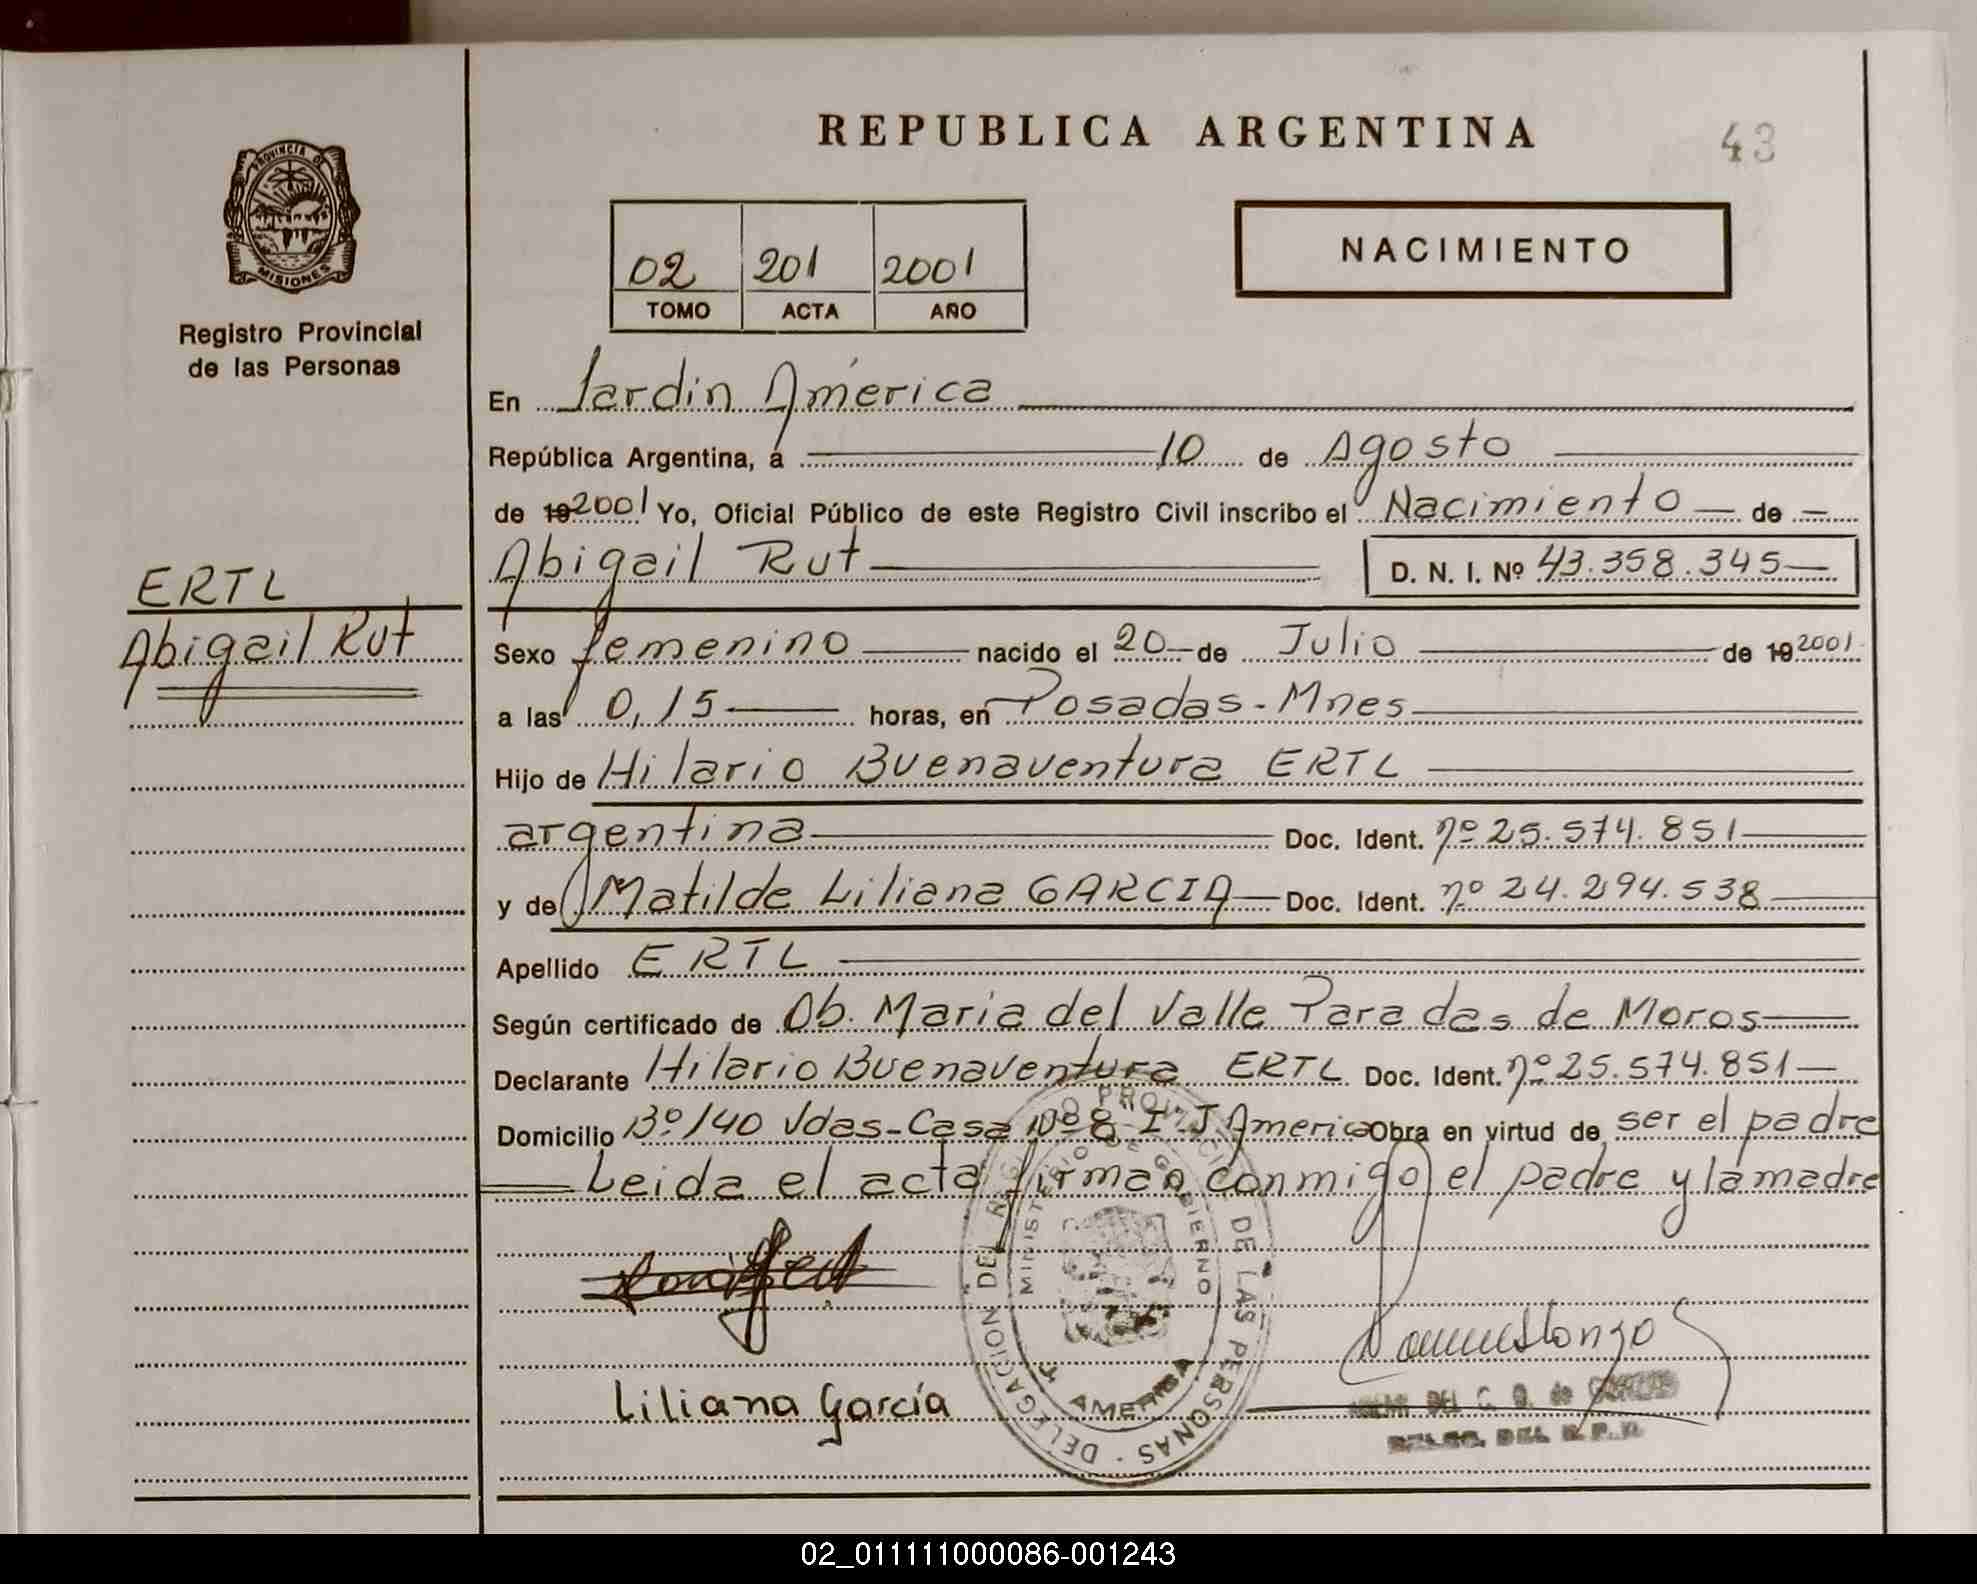 REPUBLICA ARGENTINA
43
PROVINCIA DE
MISIONES
Registro Provincial
de las Personas
02 201 2001
TOMO ACTA AÑO
NACIMIENTO
En Jardin América
República Argentina, a 10 de Agosto
de 19 2001 Yo, Oficial Público de este Registro Civil inscribo el Nacimiento de
Abigail Rut D. N. I. Nº 43.358.345
ERTL
Abigail Rut
Sexo femenino nacido el 20 de Julio de 19 2001
a las 0,15 horas, en Posadas-Mnes
Hijo de Hilario Buenaventura ERTL
argentina Doc. Ident. nº 25.574.851
y de Matilde Liliana GARCIA Doc. Ident. nº 24.294.538
Apellido ERTL
Según certificado de Ob. Maria del Valle Paradas de Moros
Declarante Hilario Buenaventura ERTL Doc. Ident. nº 25.574.851
Domicilio Bº 140 Vdas-Casa Nº 8 I-J America Obra en virtud de ser el padre
Leida el acta firman conmigo el padre y la madre
DELEGACION DEL REGISTRO PROVINCIAL DE LAS PERSONAS
MINISTERIO DE GOBIERNO
J. AMERICA
Liliana García
DEL R.P.P.
02_011111000086-001243